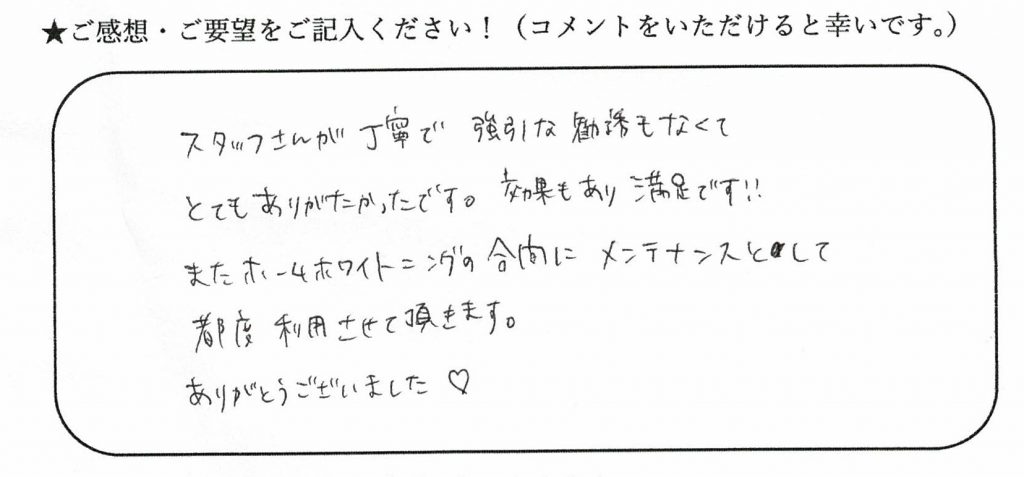 ★ご感想・ご要望をご記入ください！（コメントをいただけると幸いです。）
スタッフさんが丁寧で 強引な勧誘もなくて
とてもありがたかったです。効果もあり 満足です!!
またホームホワイトニングの合間に メンテナンスとして
都度 利用させて頂きます。
ありがとうございました♡